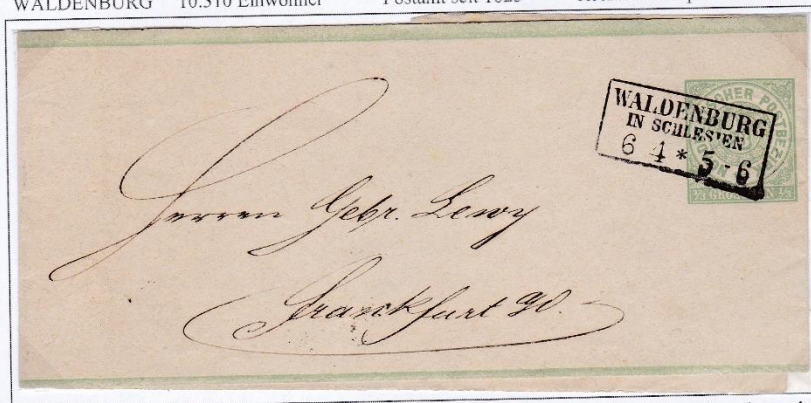 WALDENBURG 10.310 Einwohner Postamt seit
WALDENBURG
IN SCHLESIEN
6 4 * 5-6
Herren Gebr. Lewy
Frankfurt